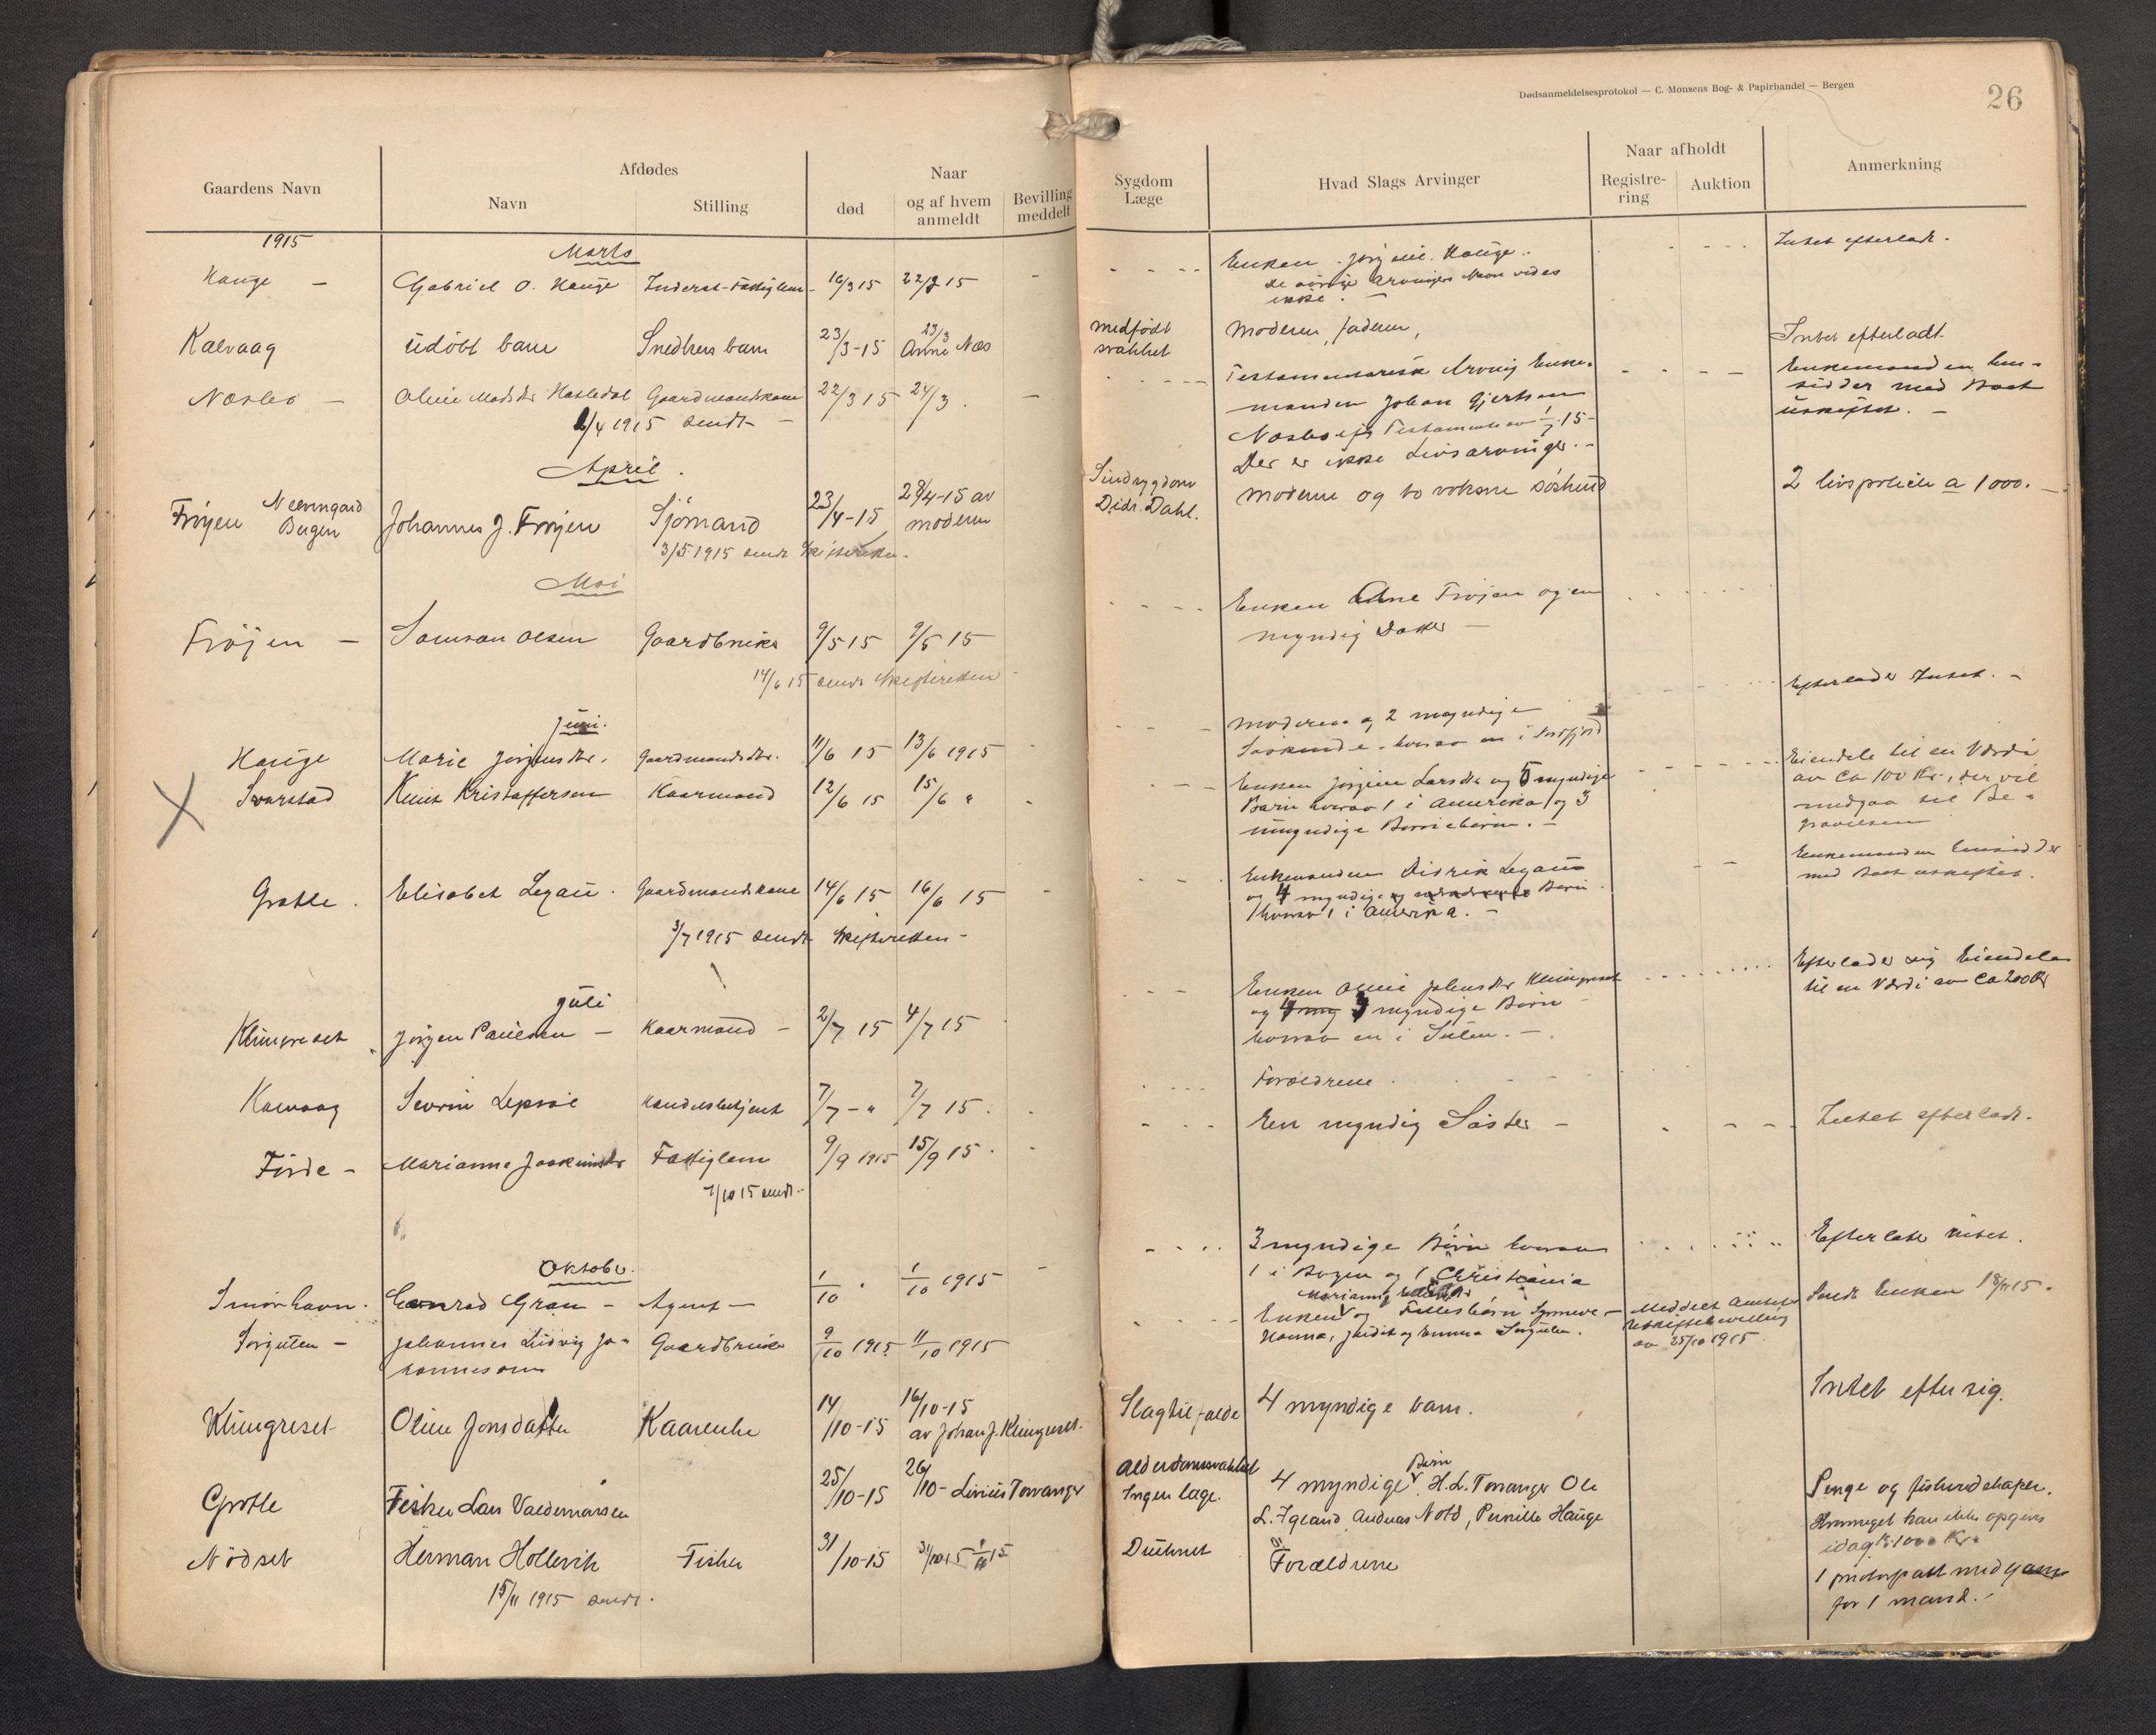 Dødsanmeldelsesprotokol — C. Monsens Bog- & Papirhandel — Bergen
26
Gaardens Navn
Afdødes
Navn
Stilling
Naar
død
og af hvem
anmeldt
Bevilling
meddelt
Sygdom
Læge
Hvad Slags Arvinger
Naar afholdt
Registre-
ring
Auktion
Anmerkning
1915
Marts
Hauge — Gabriel O. Hauge Inderst-Fattiglem 16/3 15 22/3 15
Enken Hauge
de øvrige Arvingers Navn vides
ikke. —
Intet efterladt.
Kalvaag udöbt barn Snedkers barn 23/3-15 23/3
Anna Næs
medfödt
svakhet
Moderen, faderen,
Intet efterladt
Nesbö — Oline Madsdr Hasledal Gaardmandskone 22/3 15 24/3
6/4 1915 sendt —
Testamentarisk Arving Enke-
manden Johan Gjertsen
Nesbö Testamente av 15 —
Der er ikke Livsarvinger. —
Enkemanden hen-
sidder med Boet
uskiftet. —
April.
Fröyen Neevengaard
Bergen
Johannes J. Fröyen Sjömand 23/4-15 28/4-15 av
moderen
3/5 1915 sendt Skifteretten.
Sindsygdom
Didr. Dahl.
Moderen og to voksne söskend
2 livspolicer a 1000. —
Mai
Fröjen — Samson Olsen Gaardbruker 9/5 15 9/5 15
14/6 15 sendt Skifteretten
Enken Ane Fröjen og en
myndig Datter —
Juni.
Hauge Marie Jørgensdtr. Gaardmandsdtr. 11/6 15 13/6 1915
Moderen og 2 myndige
Søskende, hvorav en i
Efterlader Intet. —
X Svarstad Knut Kristoffersen Kaarmand 12/6 15 15/6 "
Enken Jørgine Larsdtr og 5 myndige
Børn hvorav 1 i Amerika og 3
umyndige Børnebørn. —
Eiendele til en Værdi
av Ca 100 Kr., der vil
medgaa til Be-
gravelsen
Grotle. Elisabet Legau. Gaardmandskone 14/6 15 16/6 15
3/7 1915 sendt Skifteretten —
Enkemanden Didrik Legau
og 4 myndige Børn
hvorav 1 i Amerika. —
Enkemanden hensidder
med Boet uskiftet.
Juli
Klingreset Jørgen Paulsen — Kaarmand — 2/7 15 4/7 15
Enken Oline Johnsdtr Klingreset
og myndige Børn
hvorav en i Sulen. —
Efterlader sig Eiendele
til en Værdi av Ca 200 Kr
Kalvaag Sevrin Lepsøe Handelsbetjent 7/7 - " 7/7 15.
Forældrene
Förde — Marianne Joakimsdtr Fattiglem 9/9 1915 15/9 15.
1/10 15 sendt.
En myndig Søster —
Intet efterladt.
Oktober.
Smörhavn. Conrad Gran — Agent — 1/10 " 1/10 1915
3 myndige Börn hvorav
1 i Bergen og 1 Christiania
Efterlater intet.
Sörgulen — Johannes Ludvig Jo-
hannesen
Gaardbruker 9/10 1915 11/10 1915
Enken og Fellesbørn Synneve
Hanna, Judit og Emma Sørgulen.
Meddelt
Uskiftebevilling
av 25/10 1915
Sendt Enken 18/11 15.
Klingreset Oline Jonsdatter Kaarenke 14/10-15 16/10-15
av Johan J. Klingreset.
Slagtilfælde
4 myndige barn.
Intet efter sig.
Grotle Fisker Lars Valdemarsen 25/10-15 26/10- Linius Torvanger
Alderdomssvakhet
Ingen læge.
4 myndige Børn, H. L. Torvanger Ole
L. Igland, Andreas Nold, Pernille Hauge
Penge og fiskeredskaper.
Hvormeget kan ikke opgives
idag Kr. 1000 Kr.
Nödset Herman Hollevik Fisker 31/10-15
15/11 1915 sendt.
Druknet
Forældrene
1 part med garn
for 1 mand.